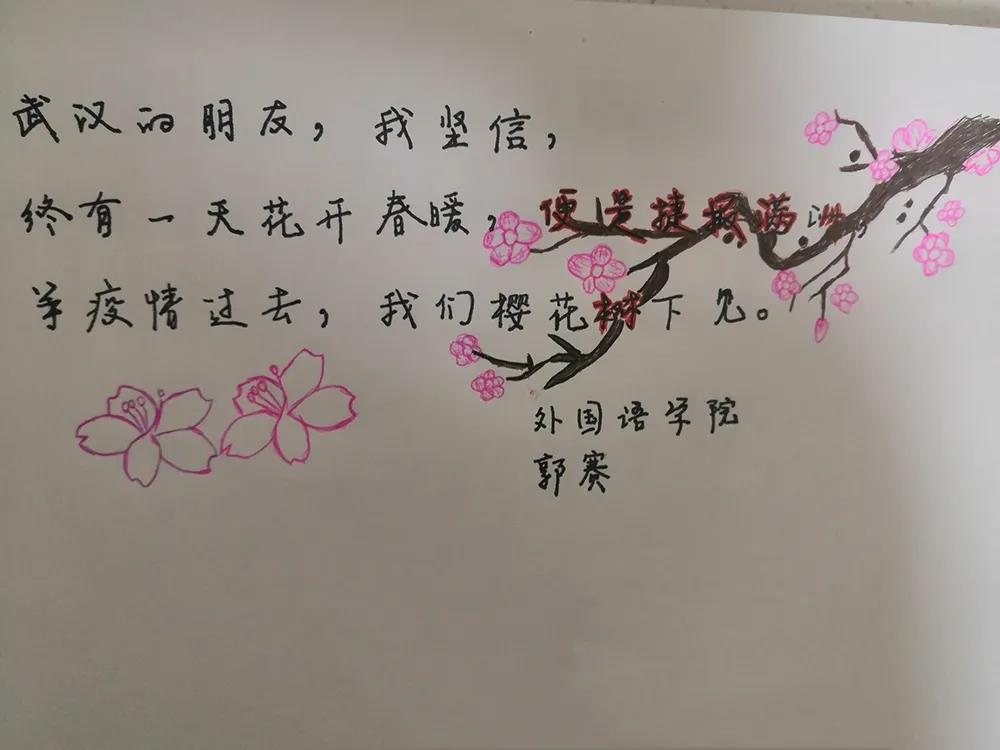 武汉的朋友，我坚信，
终有一天花开春暖，便是捷报满洲，
等疫情过去，我们樱花树下见。
外国语学院
郭赛